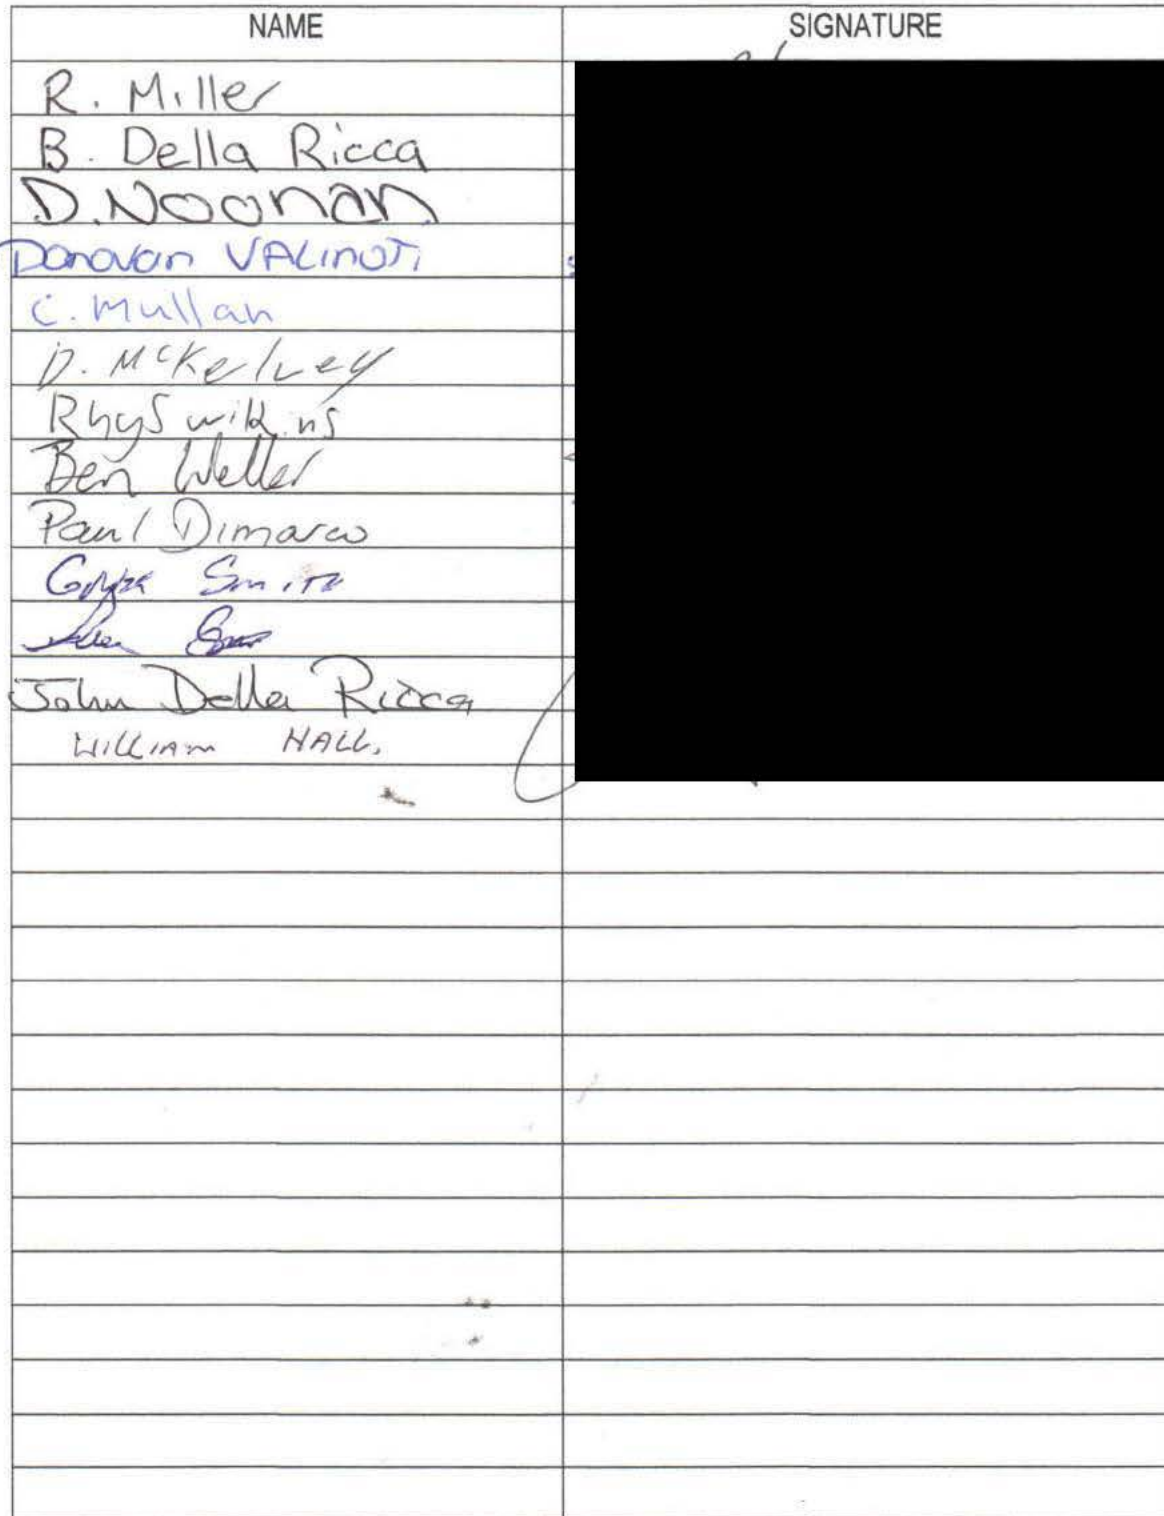 NAME SIGNATURE
R. Miller
B. Della Ricca
D. Noonan
Donovan VALINOTI
C. Mullan
D. McKelvey
Rhys wilkins
Ben Weller
Paul Dimarco
Smith
John Della Ricca
WILLIAM HALL.